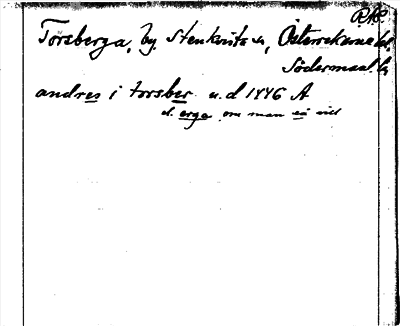 R.A.
Torsberga, by, Stenkvista sn, Österrekarne hd.
Södermanl. l.
andres i torsber u. d 1446 A
d. erga om man så vill